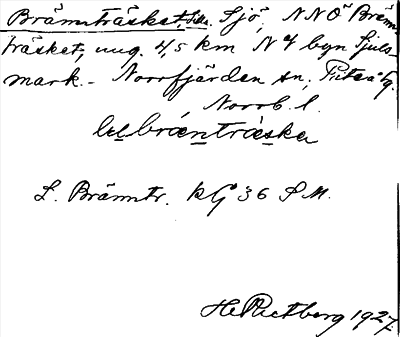 Brännträsket, Lilla. Sjö, NNÖ Bränn-
träsket, ung. 4,5 km N of byn Sjuls-
mark. – Norrfjärden sn, Piteå tg.
Norrb. l.
lɩlbrǽnträska
L. Bränntr. kG 36 S M.
H Rietberg 1927.